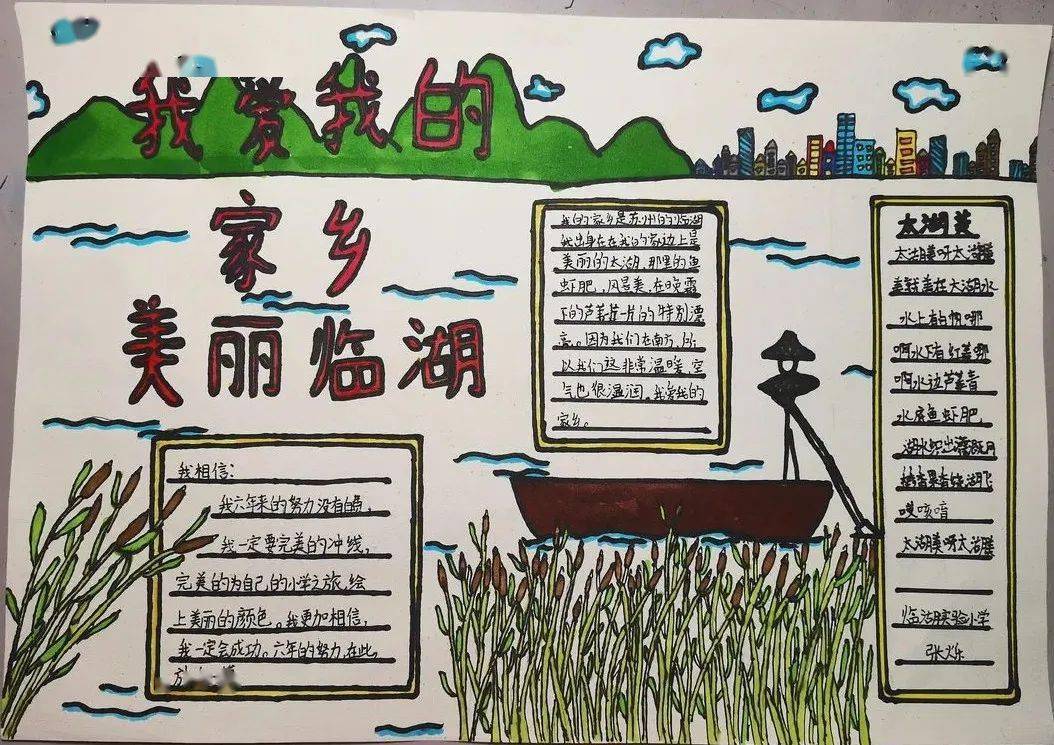 我爱我的
家乡
美丽临湖
我的家乡是苏州的临湖
我出身在在我的家边上是
美丽的太湖,那里的鱼
虾肥,风景美,在晚霞
下的芦苇是片的特别漂
亮。因为我们在南方,所
以我们这非常温暖,空
气也很湿润。我爱我的
家乡。
太湖美
太湖美呀太湖美
美就美在太湖水
水上有白帆哪
啊水下有红菱哪
啊水边芦苇青
水底鱼虾肥,
湖水织出灌溉网
稻香果香绕湖飞
哎咳唷
太湖美呀太湖美
临湖实验小学
张烁
我相信:
我六年来的努力没有白费,
我一定要完美的冲线,
完美的为自己的小学之旅,绘
上美丽的颜色。我更加相信,
我一定会成功。六年的努力,在此,